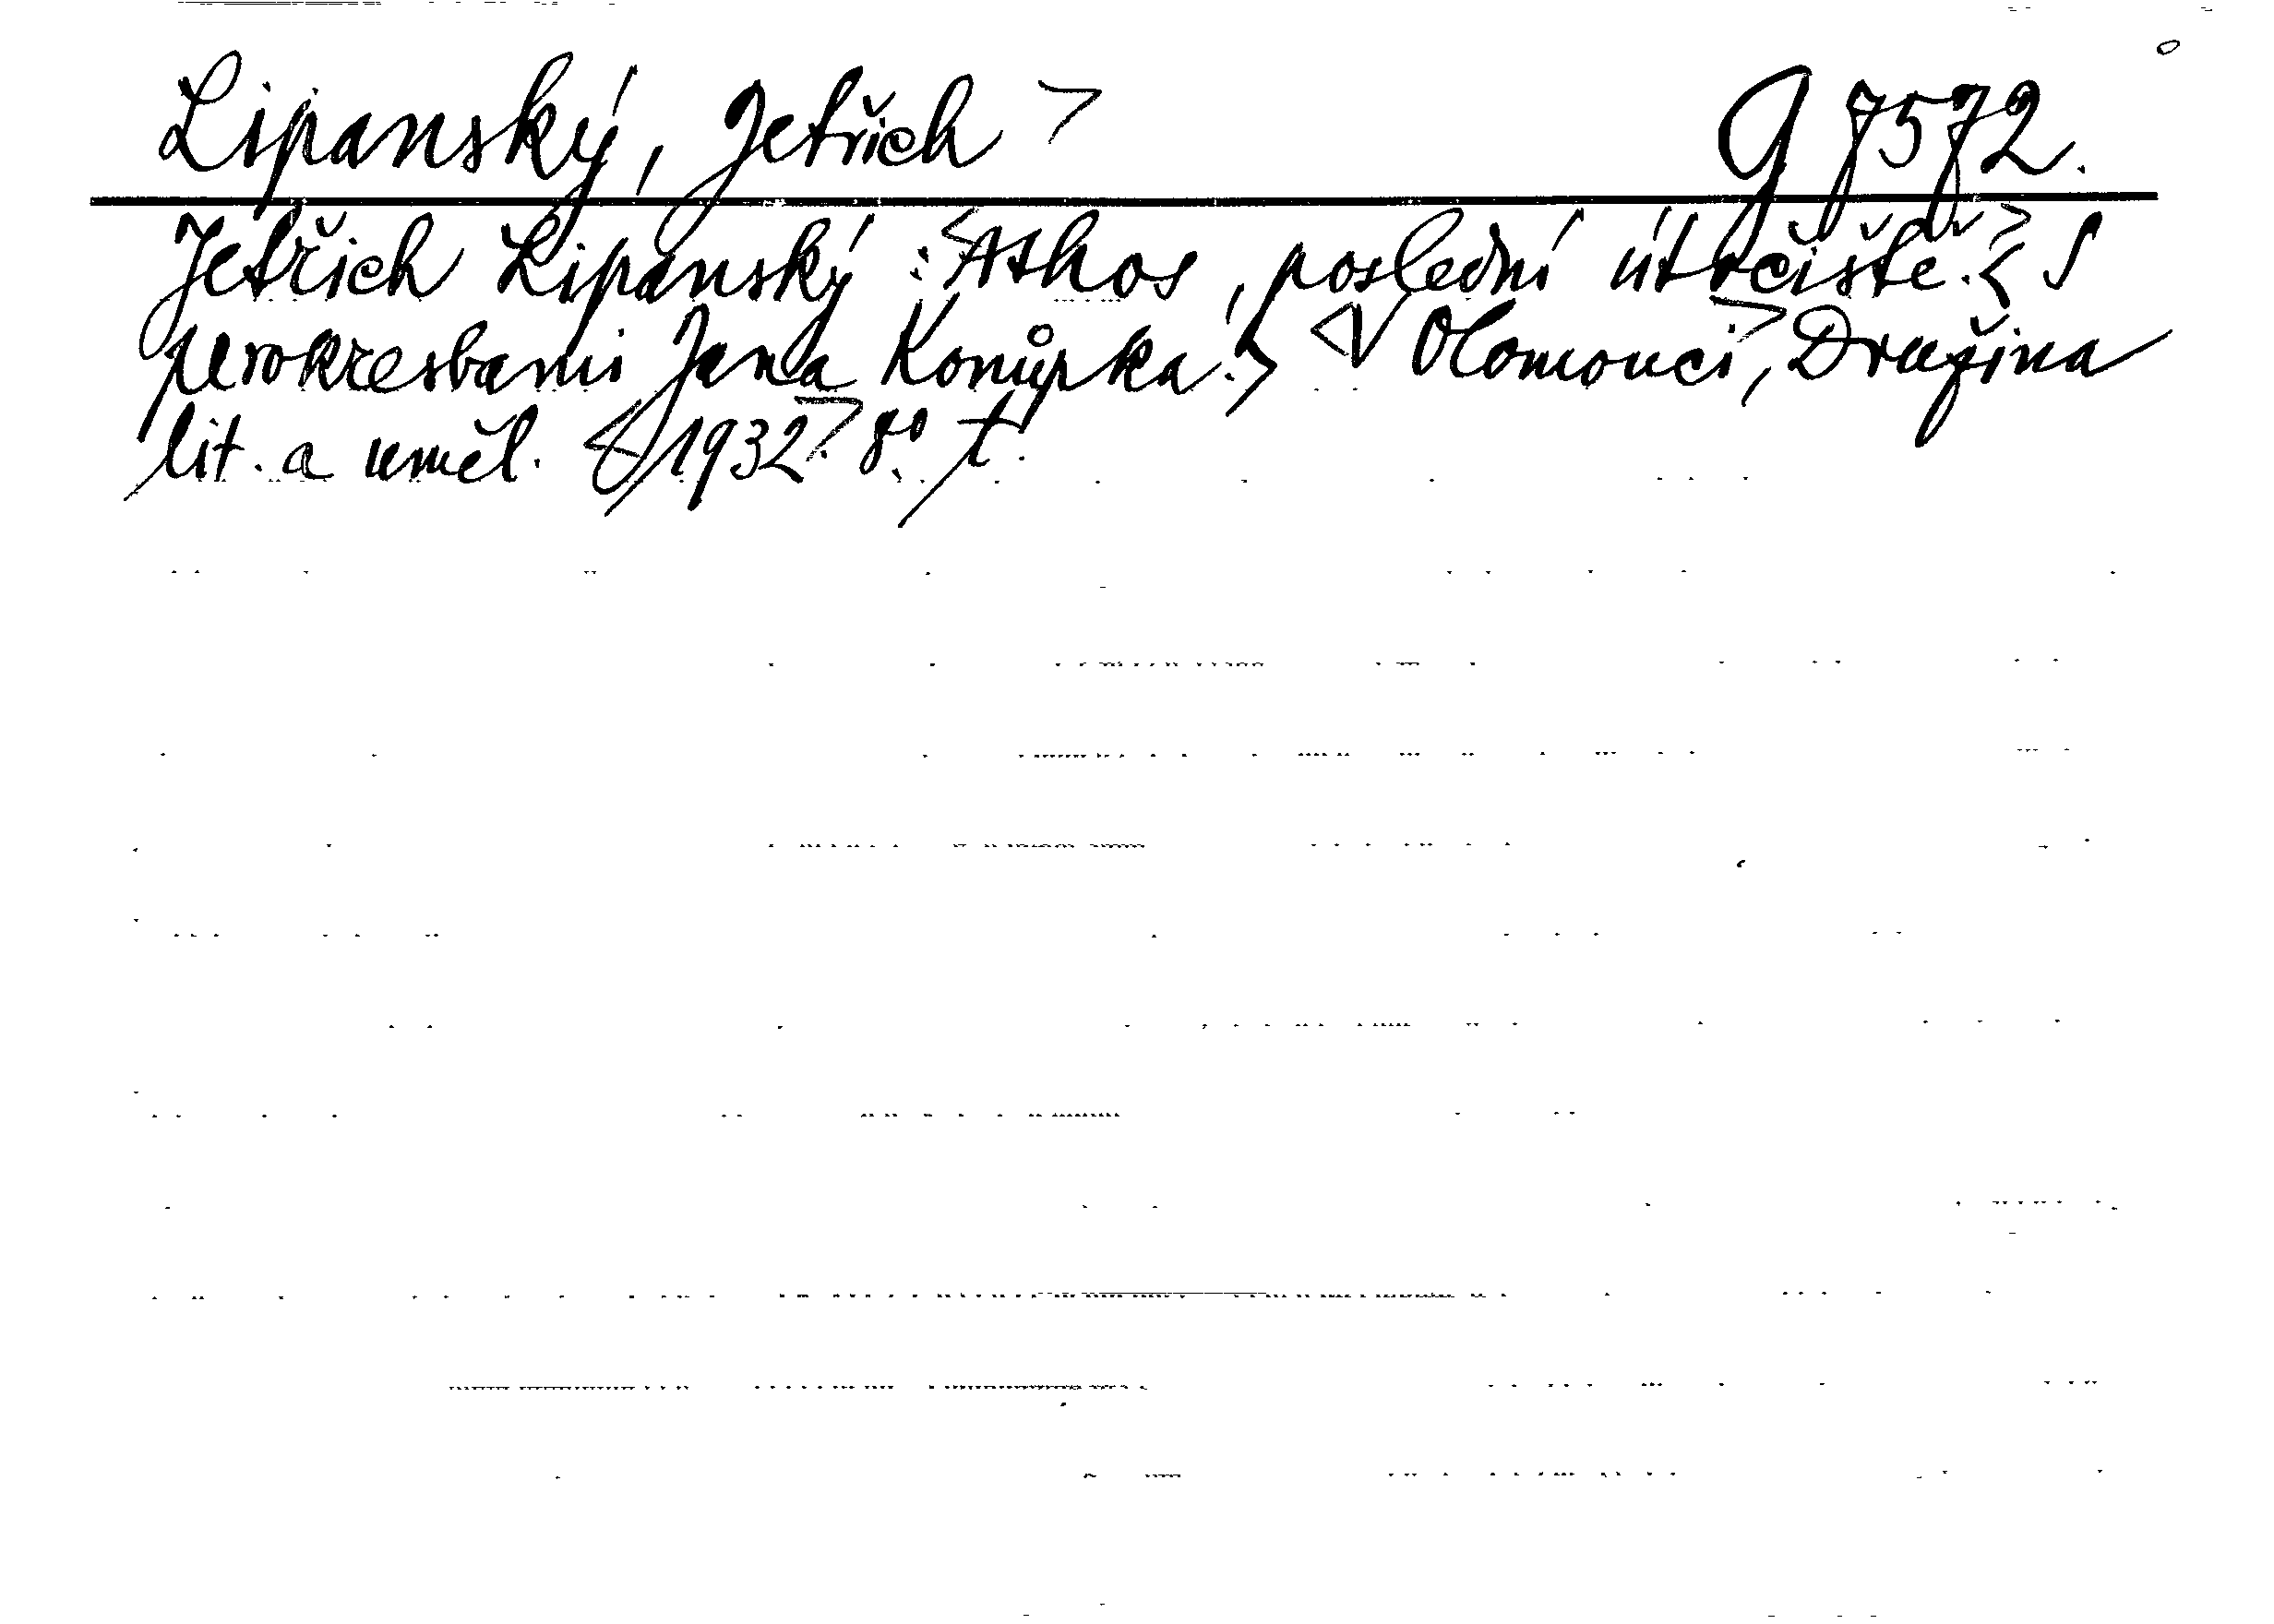 Lipanský, Jetřich > G 7572.
Jetřich Lipanský: <Athos, poslední útočiště.> < S
perokresbami Jana Konůpka.> <V Olomouci>, Družina
lit. a uměl. <1932>. 8°. t.